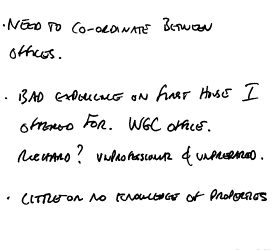 · NEED TO CO-ORDINATE BETWEEN
OFFICES.
· BAD EXPERIENCE ON FIRST HOUSE I
OFFERED FOR. WGC OFFICE.
RICHARD? UNPROFESSIONAL & UNPREPARED.
· LITTLE OR NO KNOWLEDGE OF PROPERTIES